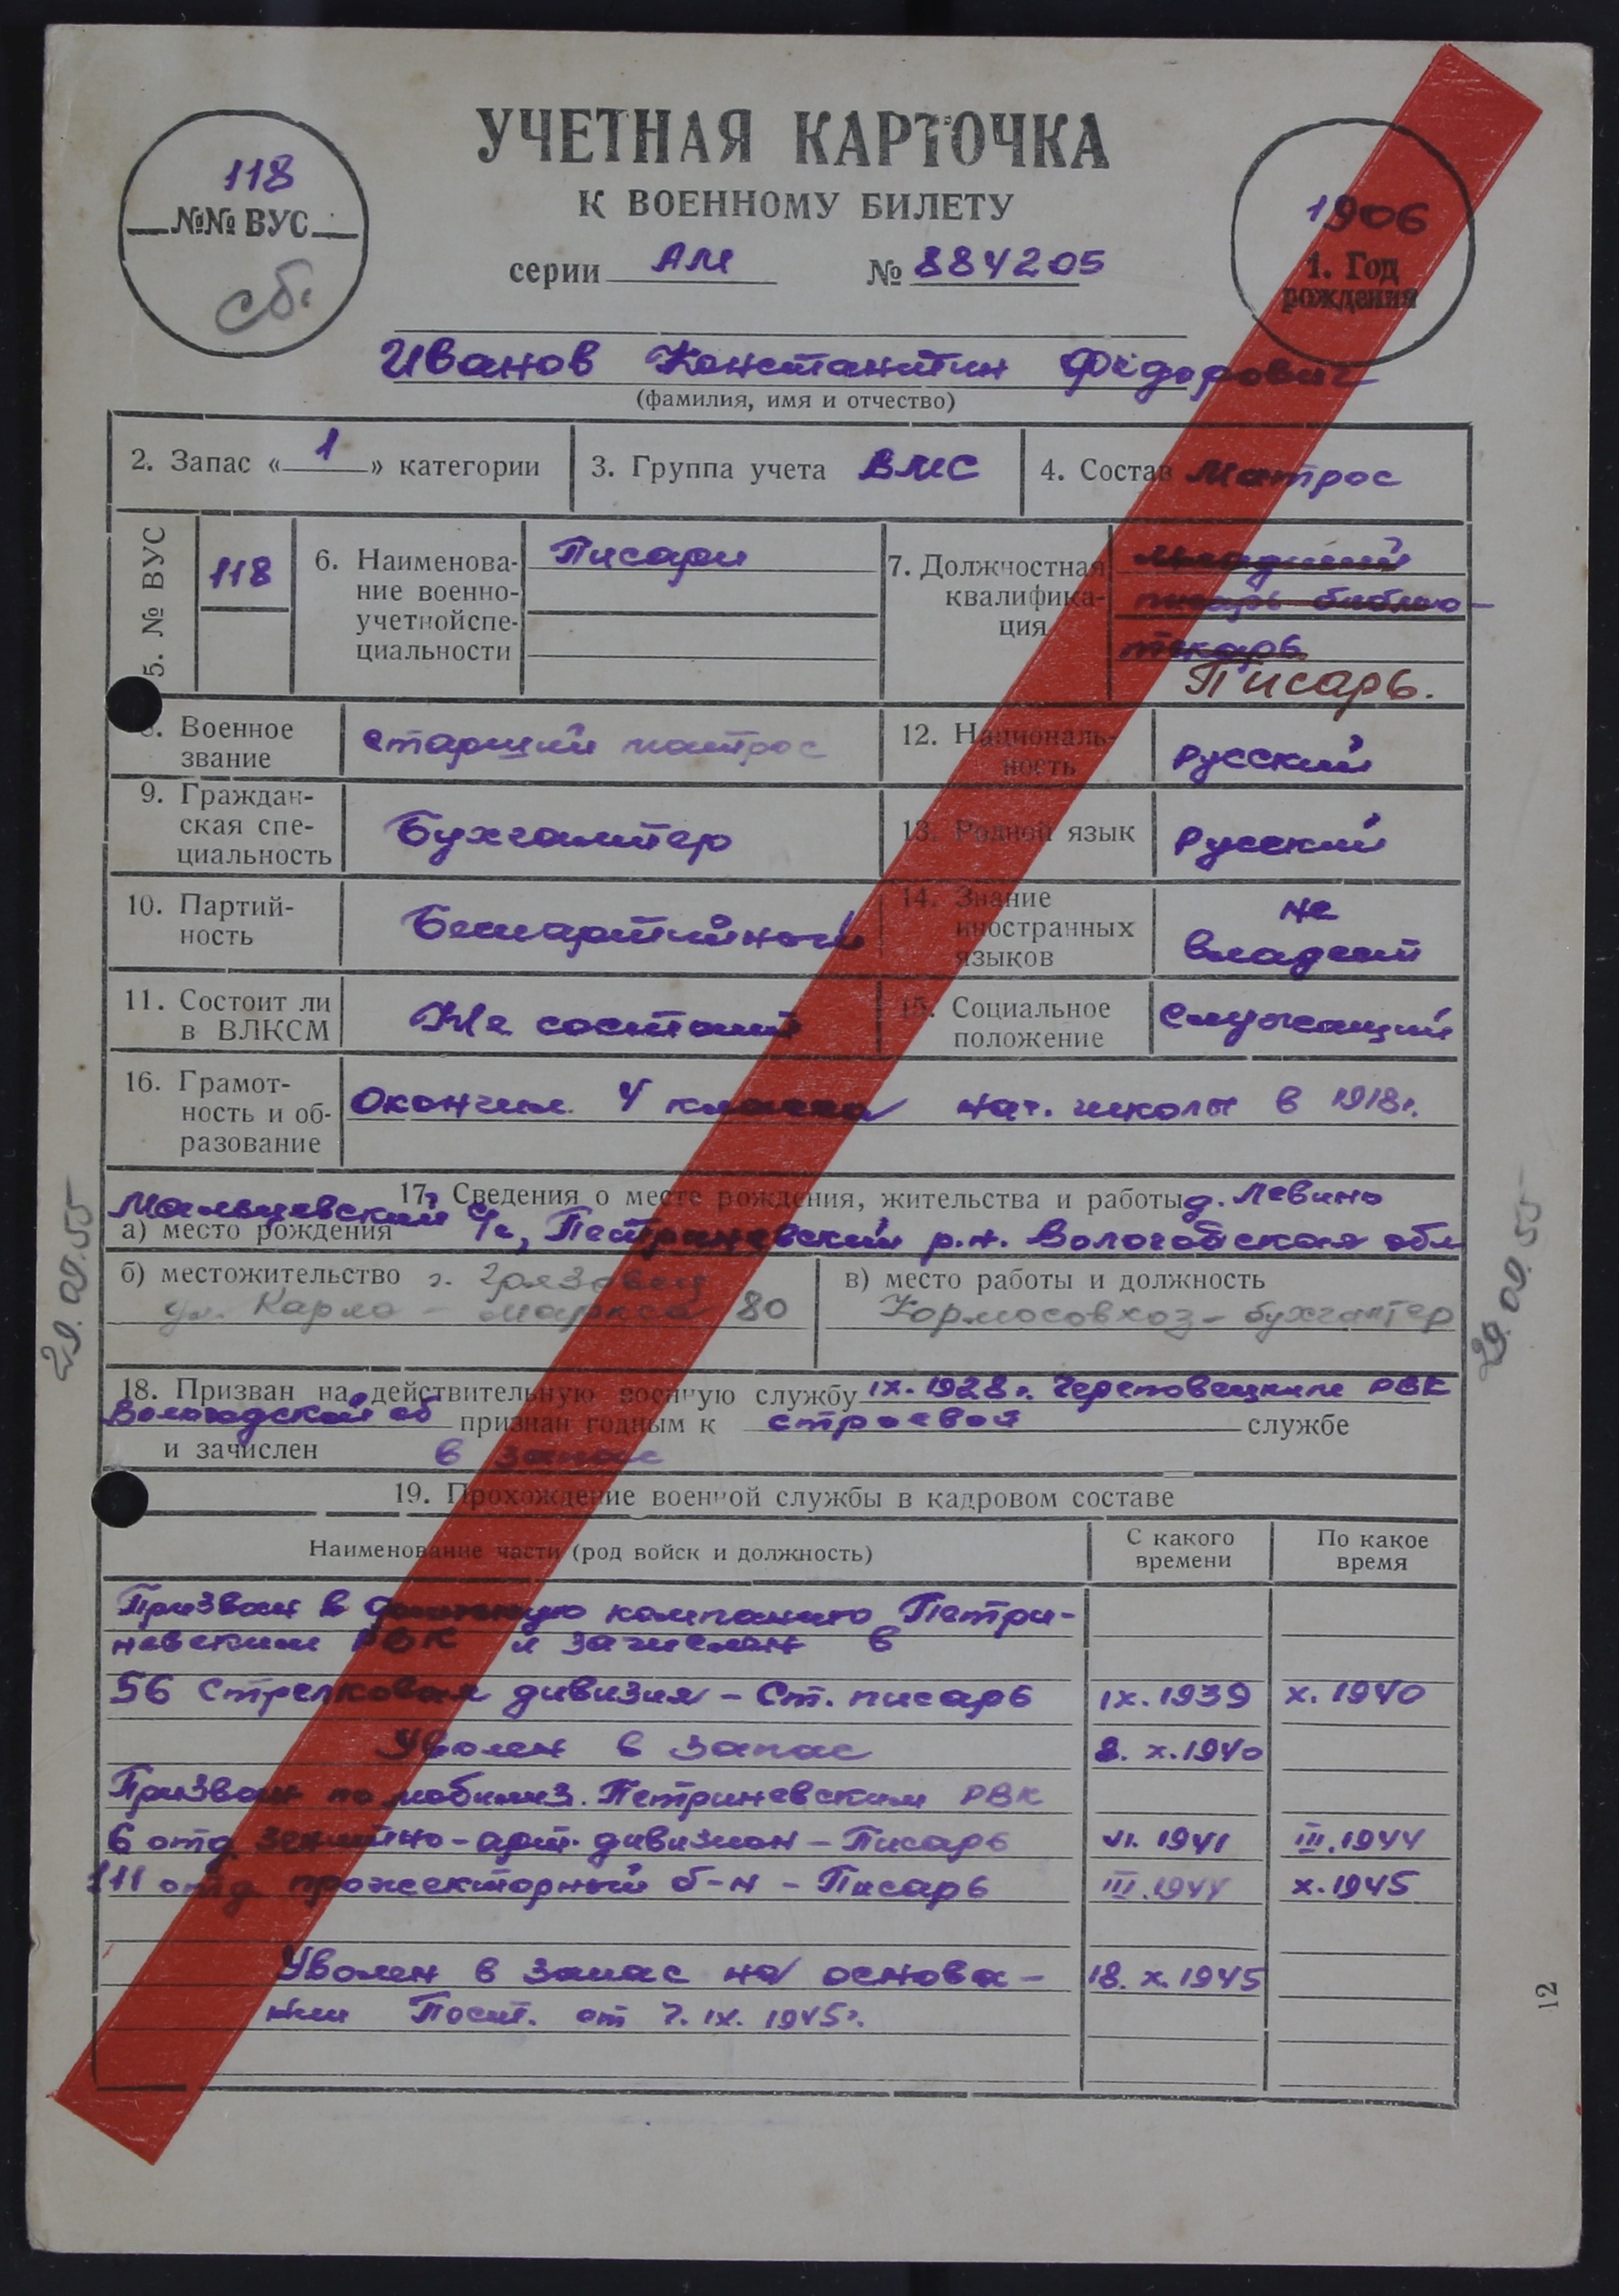 УЧЕТНАЯ КАРТОЧКА
К ВОЕННОМУ БИЛЕТУ
118
№№ ВУС
сб.
серии АМ № 884205
1906
1. Год
рождения
Иванов Константин Фёдорович
(фамилия, имя и отчество)
2. Запас «1» категории
3. Группа учета ВМС
4. Состав Матрос
5. № ВУС
118
6. Наименова-
ние военно-
учетной спе-
циальности
Писари
7. Должностная
квалифика-
ция
младший
писарь библио-
текарь
Писарь.
8. Военное
звание
старший матрос
12. Националь-
ность
Русский
9. Граждан-
ская спе-
циальность
Бухгалтер
13. Родной язык
Русский
10. Партий-
ность
Беспартийный
14. Знание
иностранных
языков
не
владеет
11. Состоит ли
в ВЛКСМ
Не состоит
15. Социальное
положение
Служащий
16. Грамот-
ность и об-
разование
Окончил 4 класса нач. школы в 1918г.
17. Сведения о месте рождения, жительства и работы д. Левино
а) место рождения
Мальцевский с/с, Петриневский р.н. Вологодская обл
б) местожительство г. Грязовец
ул. Карла - маркса 80
в) место работы и должность
Кормосовхоз - бухгалтер
29.09.55
29.09.55
18. Призван на действительную военную службу IX. 1928 г. Череповецким РВК
Вологодской об признан годным к строевой службе
и зачислен в запас
19. Прохождение военной службы в кадровом составе
Наименование части (род войск и должность)
С какого
времени
По какое
время
Призван в финскую компанию Петри-
невским РВК и зачислен в
56 Стрелковая дивизия - Ст. писарь IX. 1939 X. 1940
Уволен в запас 8. X. 1940
Призван по мобилиз. Петриневским РВК
6 отд зенитно-арт. дивизион - Писарь VI. 1941 III. 1944
111 отд прожекторный б-н - Писарь III. 1944 X. 1945
Уволен в запас на основа- 18. X. 1945
нии Пост. от 7. IX. 1945г.
12